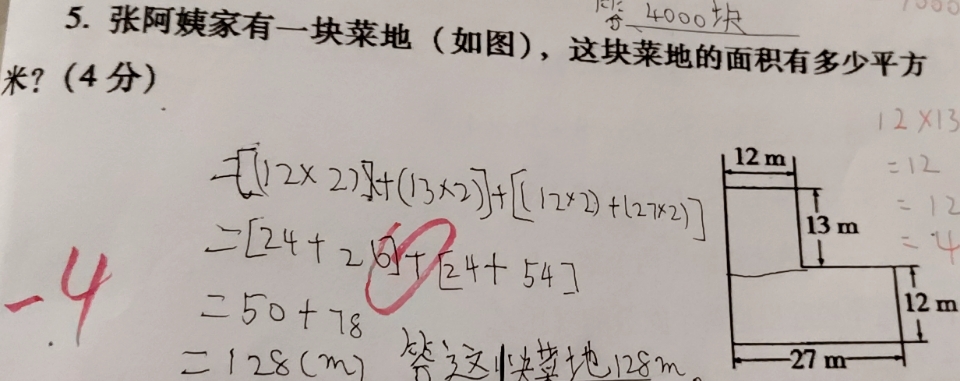 答 4000块
5. 张阿姨家有一块菜地（如图），这块菜地的面积有多少平方
米？（4分）
=[(12×2)]+(13×2)]+[(12×2)+(27×2)]
=[24+26]+[24+54]
=50+78
=128(m) 答这块菜地128m。
-4
12 m
13 m
12 m
27 m
12×13
=12
=12
=4